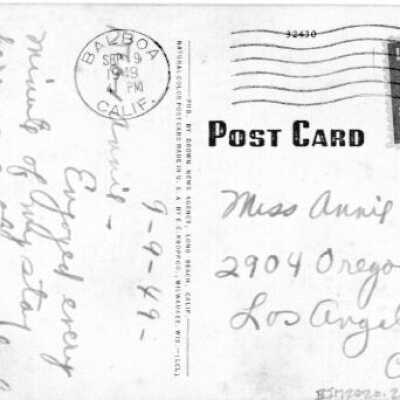 BALBOA
SEP 9
1949
PM
CALIF.
32430
POST CARD
Miss Annie
2904 Orego
Los Angel
C
9-9-49-
Annie-
Enjoyed every
minute of my stay
PUB. BY BROWN NEWS AGENCY, LONG BEACH, CALIF.
NATURAL COLOR POST CARD MADE IN U. S. A. BY E. C. KROPP CO., MILWAUKEE, WIS.